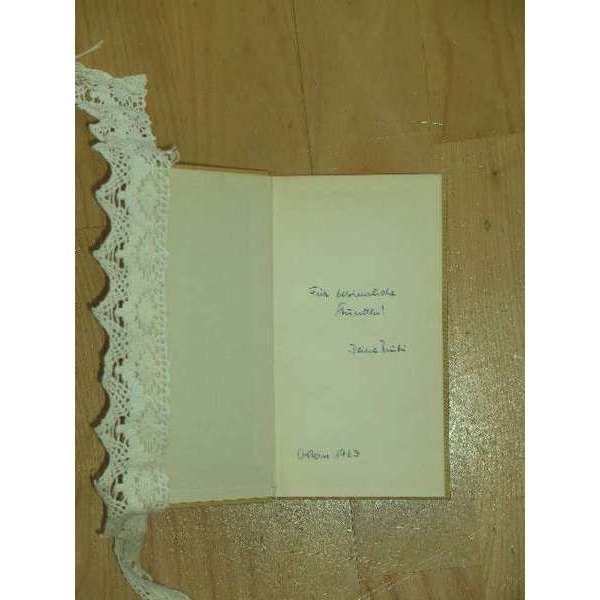 Für besinnliche
Stunden!
Deine
Ostern 1963